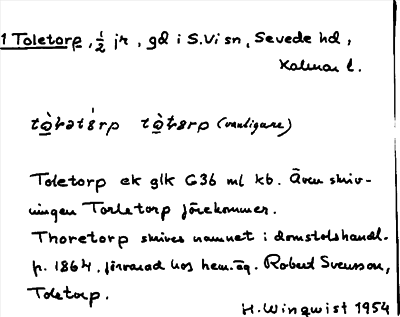 1 Toletorp, ½ jr, gd i S. Vi sn, Sevede hd,
Kalmar l.
(vanligare)
Toletorp ek glk G36 ml kb. Även skriv-
ningen Torletorp förekommer.
Thoretorp skrives namnet i domstolshandl.
fr. 1864, förvarad hos hem.äg. Robert Svensson,
Toletorp.
H. Winqwist 1954